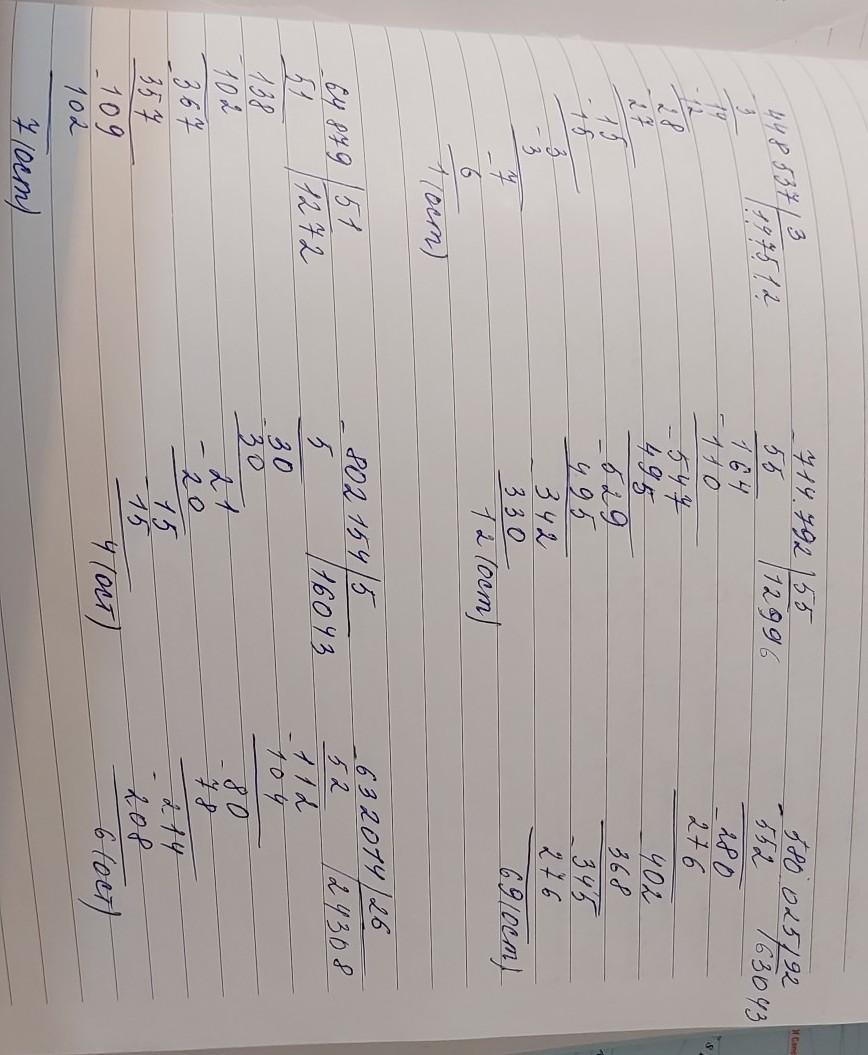 448 537 | 3
3 | 147512
-14
12
-28
27
-15
15
-3
3
-7
6
1(ост)
-714.792 | 55
55 | 12996
164
-110
-547
495
-529
495
-342
330
12(ост)
-580 025 | 92
552 | 63043
-280
276
402
368
-345
276
69(ост)
-64879 | 51
51 | 1272
138
102
-367
357
-109
102
7(ост)
-802154 | 5
5 | 16043
-30
30
-21
20
-15
15
4(ост)
-632014 | 26
52 | 24308
-112
104
-80
78
-214
208
6(ост)